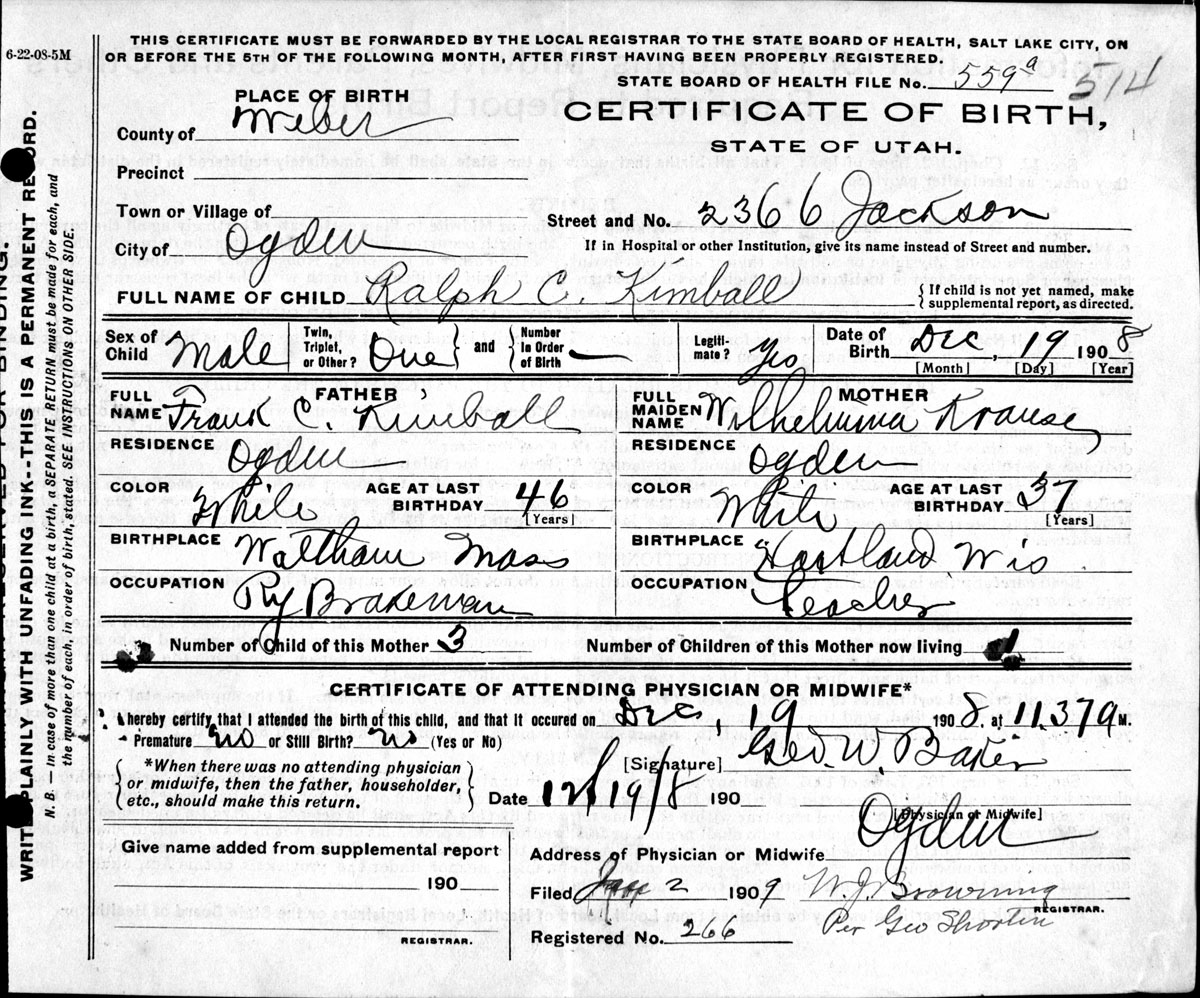 6-22-08-5M
THIS CERTIFICATE MUST BE FORWARDED BY THE LOCAL REGISTRAR TO THE STATE BOARD OF HEALTH, SALT LAKE CITY, ON
OR BEFORE THE 5TH OF THE FOLLOWING MONTH, AFTER FIRST HAVING BEEN PROPERLY REGISTERED.
STATE BOARD OF HEALTH FILE No. 559a 514
PLACE OF BIRTH
CERTIFICATE OF BIRTH,
STATE OF UTAH.
County of Weber
Precinct
Town or Village of
Street and No. 2366 Jackson
City of Ogden
If in Hospital or other Institution, give its name instead of Street and number.
FULL NAME OF CHILD Ralph C. Kimball
{ If child is not yet named, make
supplemental report, as directed.
Sex of Child Male
Twin, Triplet, or Other? One } and { Number in Order of Birth —
Legiti-mate? Yes
Date of Birth Dec, 19 1908
[Month] [Day] [Year]
FATHER
FULL NAME Frank C. Kimball
MOTHER
FULL MAIDEN NAME Wilhelmina Krause
RESIDENCE Ogden
RESIDENCE Ogden
COLOR White AGE AT LAST BIRTHDAY 46 [Years]
COLOR White AGE AT LAST BIRTHDAY 37 [Years]
BIRTHPLACE Waltham Mass
BIRTHPLACE Hartland Wis
OCCUPATION Ry Brakeman
OCCUPATION Teacher
Number of Child of this Mother 3 Number of Children of this Mother now living 1
CERTIFICATE OF ATTENDING PHYSICIAN OR MIDWIFE*
I hereby certify that I attended the birth of this child, and that it occured on Dec, 19 1908, at 11.37 M.
Premature No or Still Birth? No (Yes or No)
[Signature] Geo. W. Baker
{ *When there was no attending physician
or midwife, then the father, householder,
etc., should make this return. }
Date 12/19/8 190
[Physician or Midwife]
Give name added from supplemental report
Address of Physician or Midwife Ogden
190
Filed Jan 2 1909 W.J. Browning
REGISTRAR.
Per Geo Shorten
REGISTRAR.
Registered No. 266
WRITE PLAINLY WITH UNFADING INK--THIS IS A PERMANENT RECORD.
N. B. — In case of more than one child at a birth, a SEPARATE RETURN must be made for each, and
the number of each, in order of birth, stated. SEE INSTRUCTIONS ON OTHER SIDE.